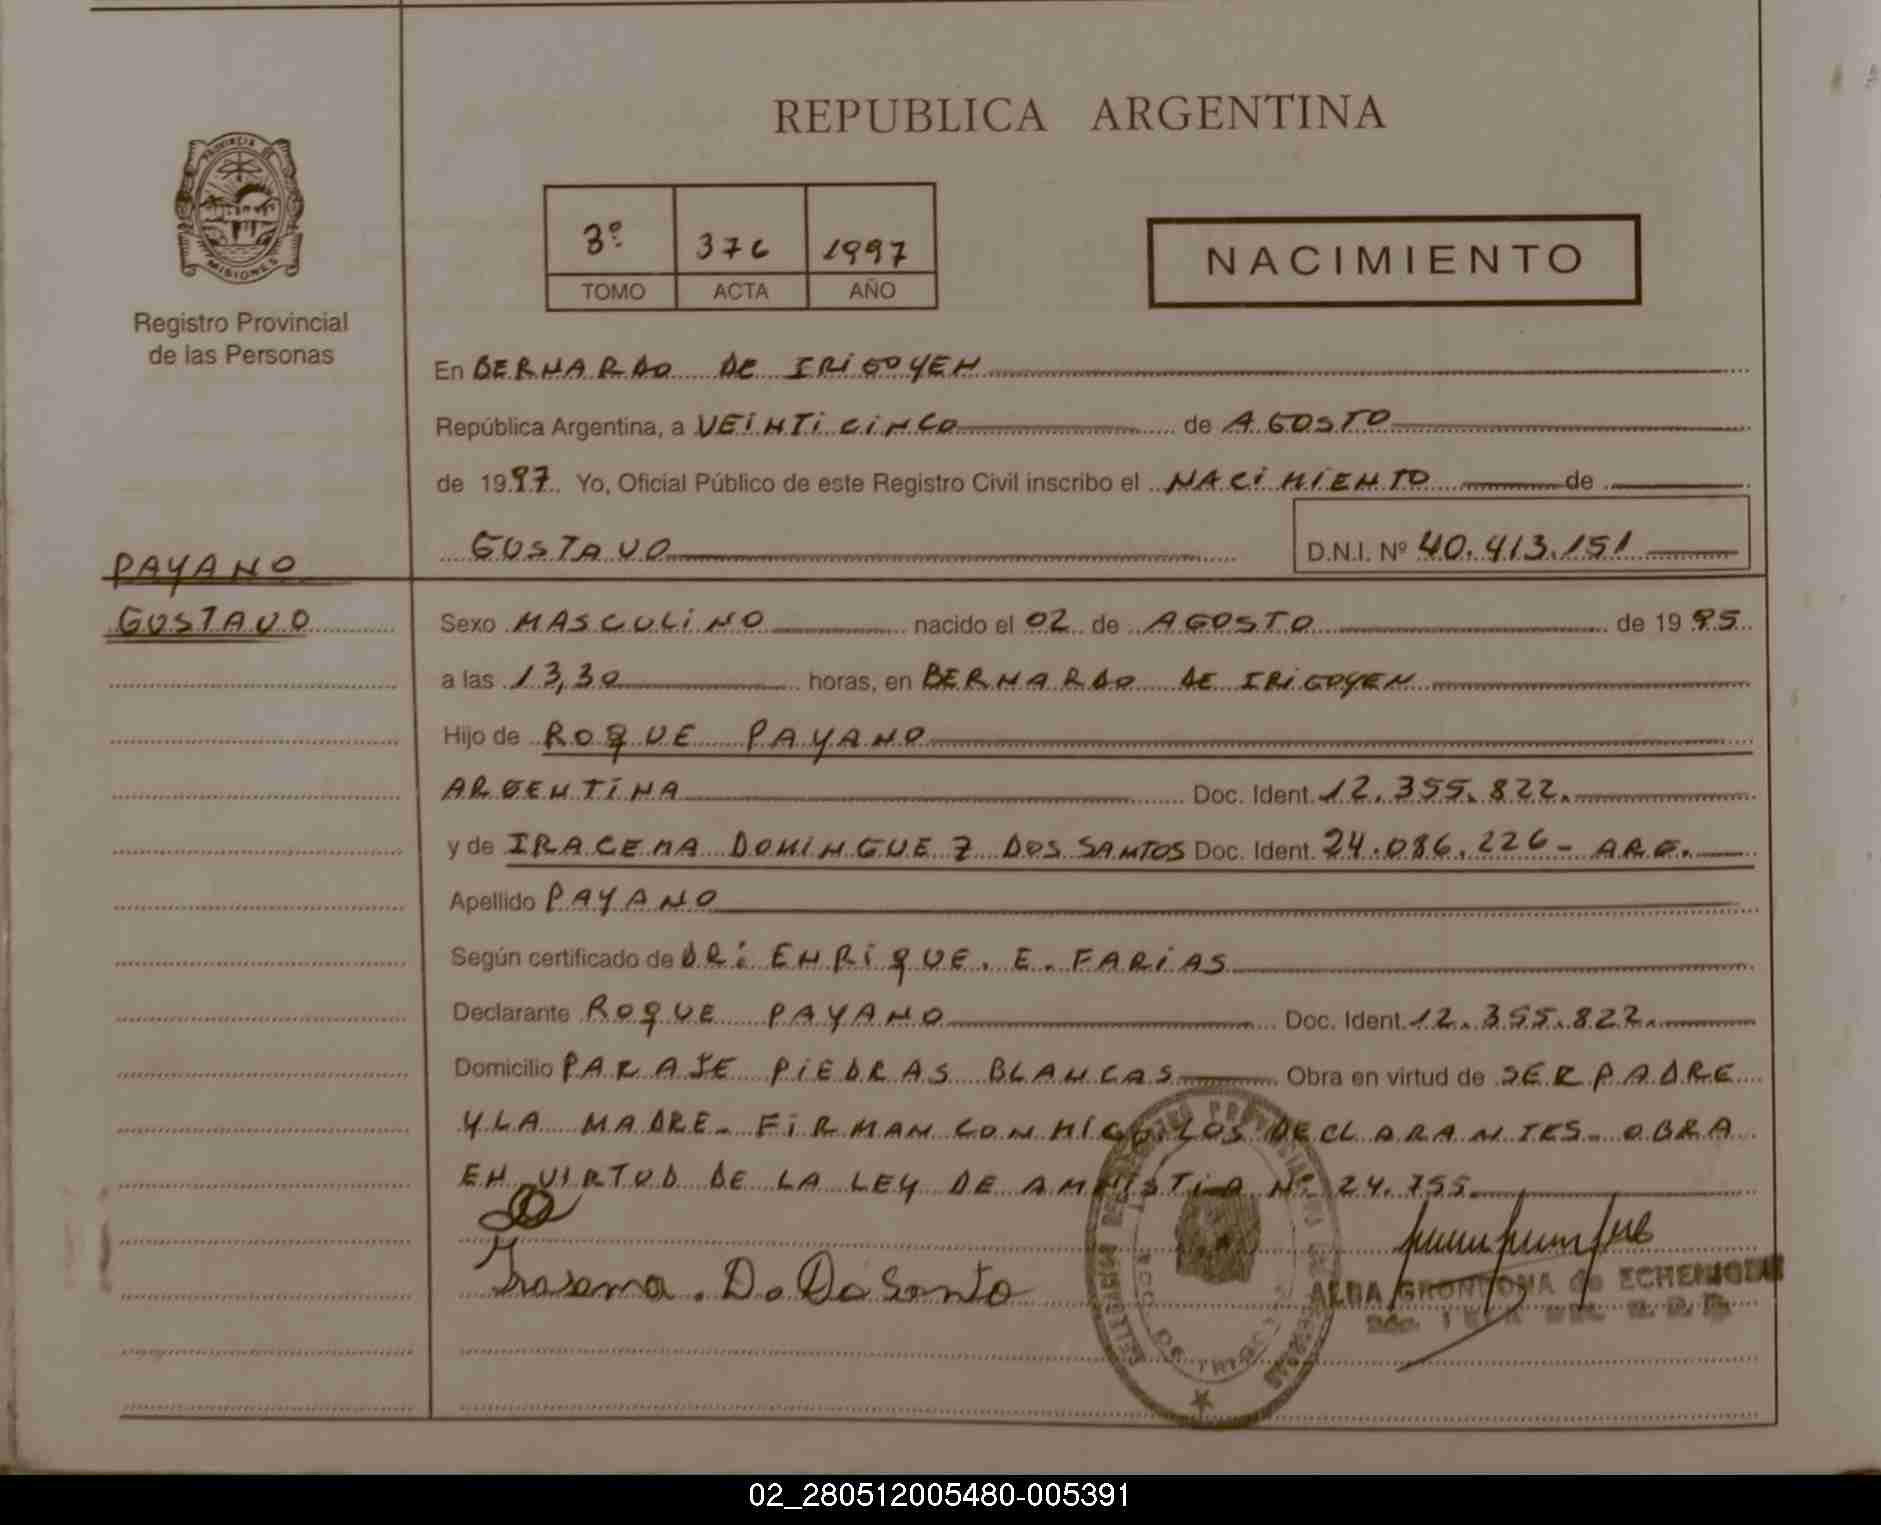 REPUBLICA ARGENTINA
PROVINCIA DE
MISIONES
Registro Provincial
de las Personas
3º 376 1997
TOMO ACTA AÑO
NACIMIENTO
En BERNARDO DE IRIGOYEN
República Argentina, a VEINTICINCO de AGOSTO
de 1997. Yo, Oficial Público de este Registro Civil inscribo el NACIMIENTO de
GUSTAVO D.N.I. Nº 40.413.151
PAYANO
GUSTAVO
Sexo MASCULINO nacido el 02 de AGOSTO de 1995
a las 13,30 horas, en BERNARDO DE IRIGOYEN
Hijo de ROQUE PAYANO
ARGENTINA Doc. Ident. 12.355.822.
y de IRACEMA DOMINGUEZ DOS SANTOS Doc. Ident. 24.086.226- ARG.
Apellido PAYANO
Según certificado de DR: ENRIQUE. E. FARIAS
Declarante ROQUE PAYANO Doc. Ident. 12.355.822.
Domicilio PARAJE PIEDRAS BLANCAS Obra en virtud de SER PADRE
Y LA MADRE- FIRMAN CONMIGO LOS DECLARANTES- OBRA
EN VIRTUD DE LA LEY DE AMNISTIA Nº 24.755
D. Do Santo
ALBA GRONDONA de
02_280512005480-005391